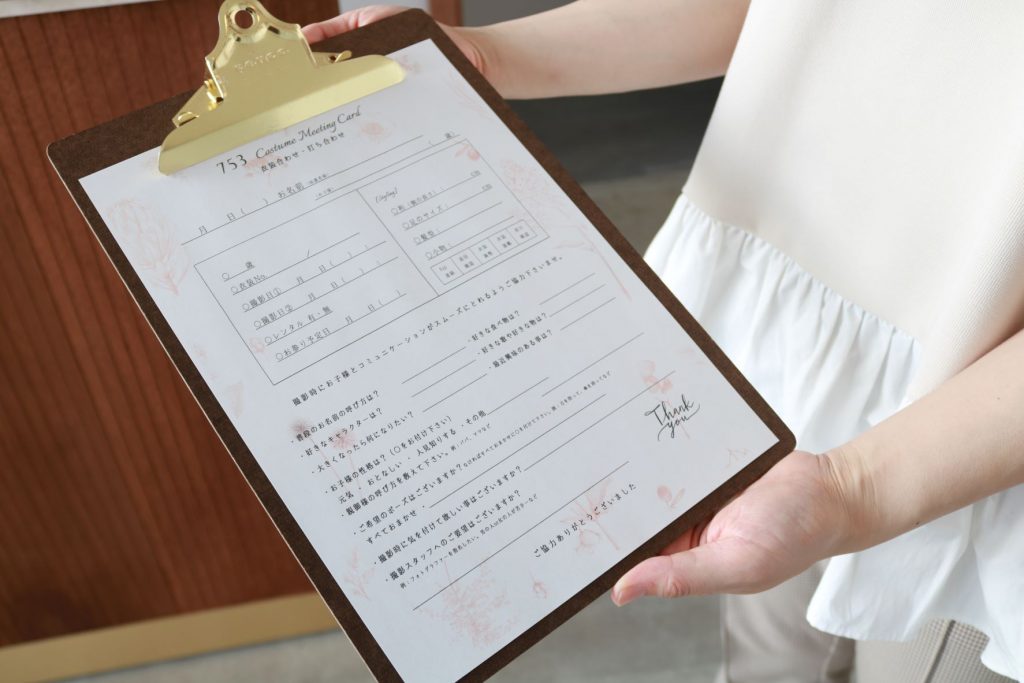 753 Costume Meeting Card
衣装合わせ・打ち合わせ
月 日( ) お名前 ( 歳)
○ 歳
○衣装No. /
○撮影日① 月 日( )
○撮影日② 月 日( )
○レンタル 有・無
○お参り予定日 月 日( )
(Styling)
○裄(腕の長さ): cm
○足のサイズ: cm
○髪型:
○小物:
撮影時にお子様とコミュニケーションがスムーズにとれるようご協力下さいませ。
・普段のお名前の呼び方は?
・好きなキャラクターは?
・大きくなったら何になりたい?
・好きな食べ物は?
・好きな歌や好きな物は?
・最近興味のある事は?
・お子様の性格は?(○をお付け下さい)
元気 ・ おとなしい ・ 人見知りする ・その他
・親御様の呼び方を教えて下さい。例:パパ、ママなど
・ご希望のポーズはございますか?
すべておまかせ ・
・撮影時に気を付けて欲しい事はございますか?
・撮影スタッフへのご要望はございますか?
ご協力ありがとうございました
Thank
you